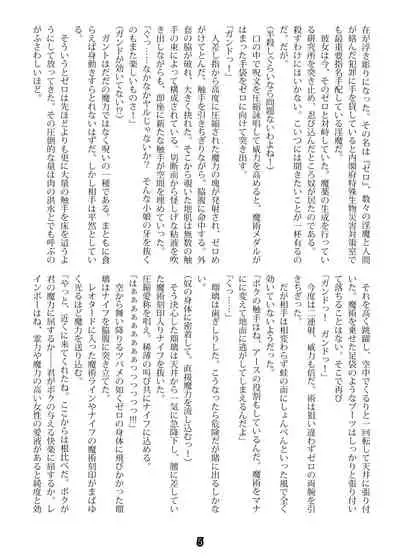 在が浮き彫りになった。その名は『ゼロ』。数々の淫魔と人間
が絡んだ犯罪に手を貸していると内閣府特殊生物災害対策室で
も最重要指名手配している淫魔だ。
彼女は今、そのゼロと対峙していた。魔薬の生成を行ってい
る研究所を突き止め、忍び込んだところ奴が居たのである。
殺すわけにはいかない。こいつには聞きたいことが一杯有るの
だ、だが、
(半殺しでといなら問題ないわよね!)
口の中で呪文を圧縮詠唱して威力を高めると、魔術メダルが
はまった手袋をゼロに向けて突き出す。
「ガンドっ!」
人差し指から高度に圧縮された魔力の塊が発射され、ゼロめ
がけてとんだ。触手を引きちぎりながら、脇腹に命中する。外
套の脇が破れ、大きく捲れた。そこから覗いた地肌は無数の触
手の束によって構成されている。切断面から怪しげな粘液を吹
き出しながらも、即座に新たな触手が空間を埋めていった。
「ぐっ……なかなかヤールじゃないか? そんな小娘の牙を抜く
のもまた楽しいものさ!」
(ガンドが効いてない?)
ガントはただの魔力ではなく呪いの一種である。まともに食
らえば身動きすらとれないはずだ。しかし相手は平然としてい
る。そういうとゼロは先ほどよりも更に大量の触手を床を這うよ
うにして放ってきた。その圧倒的な量は肉の洪水とでも呼ぶの
がふさわしいほど。
それを高く跳躍し、空中でくるりと一回転して天井に張り付
いた。魔術を乗せた足袋のようなブーツはしっかりと張り付い
て落ちることはない。そこで再び
「ガンドっ! ガンドっ!」
今度は二連射。威力も倍だ。術は狙い違わずゼロの両腕を引
きちぎった。
だが相手は相変わらず蛙の面にしょんべんといった風で全く
効いていないようだった。
「ボクの触手はね、アースの役割もしているんだよ。魔術をマナ
にに変えて地面に逃がしてしまえるんだよ」
「くっ……」
瑠璃は歯ぎしりした。こうなったら危険だが賭に出るしかな
い。
(奴の身体に密着して、直接魔力を流し込むっ!)
そう決心した瑠璃は天井から一気に急降下し、腰に差してい
た魔術刻印入りナイフを抜いた。
圧縮愛称を唱え、裂帛の叫び共にナイフに込める。
「はぁぁぁぁぁぁぁぁっっっっっ!!!」
空から舞い降りるツバメの如くゼロの身体に飛びかかった瑠
璃はナイフを脇腹に突き立てた。
レオタードに入った魔術ラインやナイフの魔術刻印がまばゆ
く光るほど魔力を送り込む。
「やっと、近くに来てくれたね。ここからは根比べだ。ボクが
君の魔力に屈するか! 君がボクの与える快楽に屈するか。レ
インボーはね、霊力や魔力の高い女性の愛液があると純度と効
5